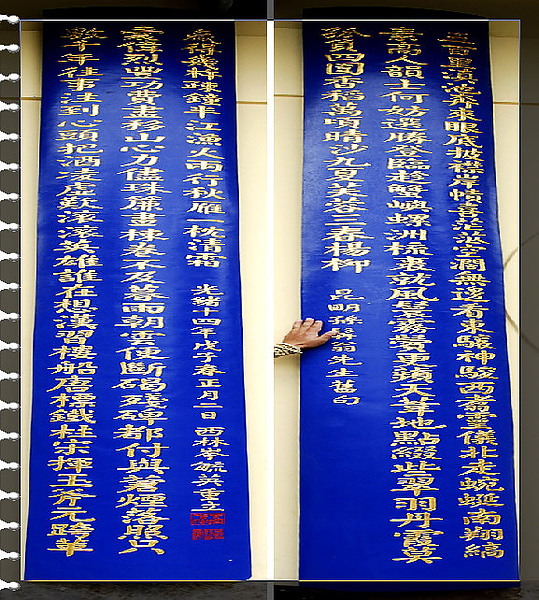 五百里滇池奔來眼底披襟岸幘喜茫茫空闊無邊看東驤神駿西翥靈儀北走蜿蜒南翔縞
素高人韻士何妨選勝登臨趁蟹嶼螺洲梳裹就風鬟霧鬢更蘋天葦地點綴些翠羽丹霞莫
孤負四圍香稻萬頃晴沙九夏芙蓉三春楊柳
昆明孫髯翁先生舊句
數千年往事注到心頭把酒凌虛歎滾滾英雄誰在想漢習樓船唐標鐵柱宋揮玉斧元跨革
囊偉烈豐功費盡移山心力儘珠簾畫棟卷不及暮雨朝雲便斷碣殘碑都付與蒼煙落照只
贏得幾杵疎鐘半江漁火兩行秋雁一枕清霜
光緒十四年戊子春正月一日 西林岑毓英重立